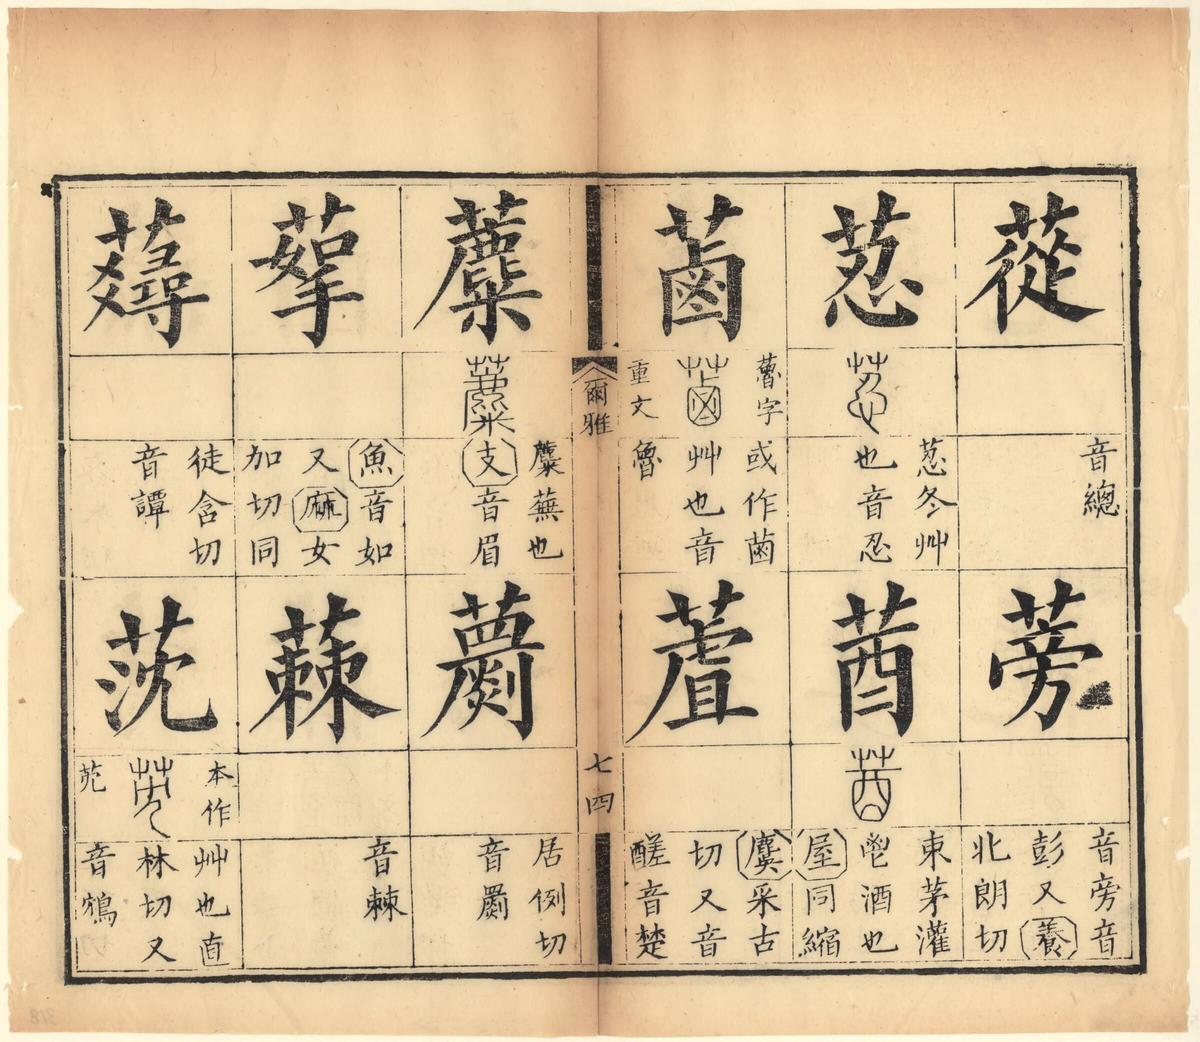 蓯
音總
荵
荵冬艸
也音忍
䔃字
或作菡
艸也音
重文
魯
蒡
音旁音
彭又養
北朗切
莤
東茅灌
鬯酒也
屋同縮
蔖
麌采古
切又音
醝音楚
爾雅
七四
蘪
蘪蕪也
支音眉
蒘
魚音如
又麻女
加切同
蕁
徒含切
音譚
居例切
音罽
蕀
音棘
莐
本作
艸也直
林切又
音鴆